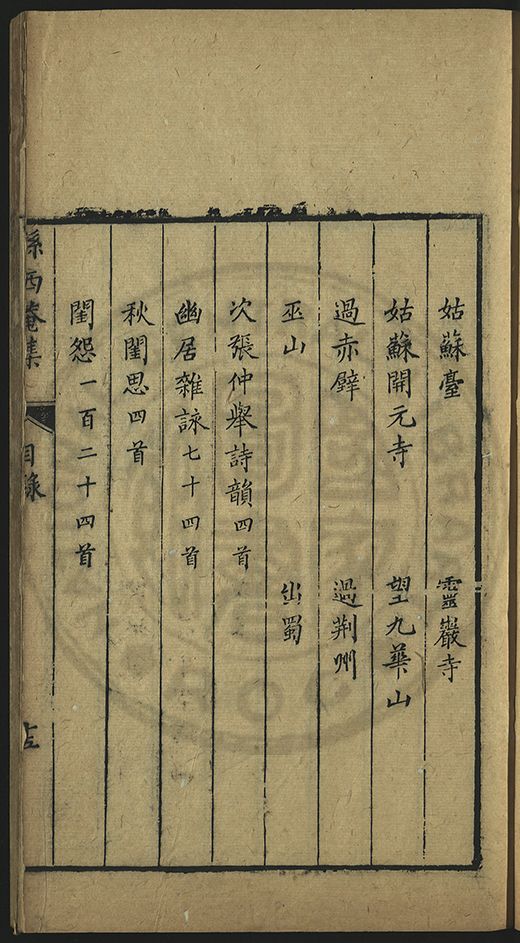 姑蘇臺 靈巖寺
姑蘇開元寺 望九華山
過赤壁 過荆州
巫山 出蜀
次張仲舉詩韻四首
幽居雜詠七十四首
秋閨思四首
閨怨一百二十四首
孫西菴集 目錄